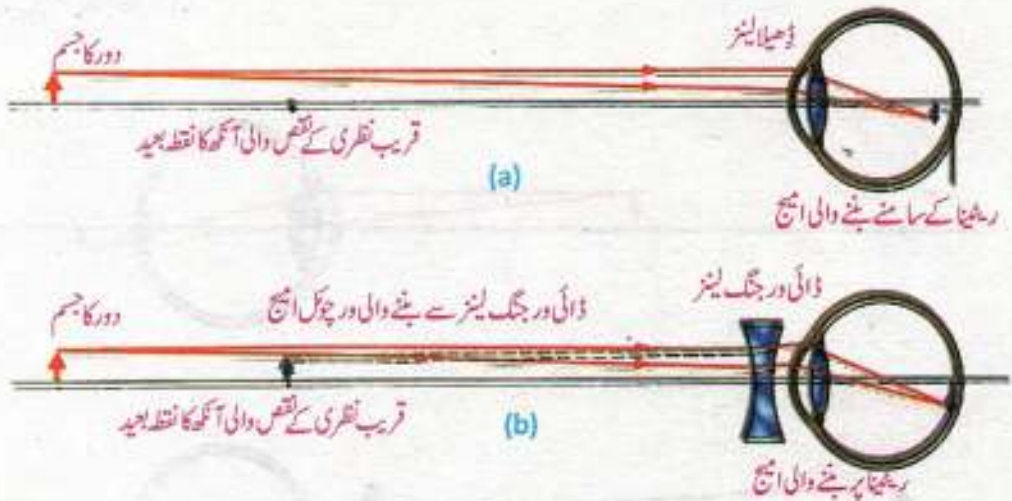 دور کا جسم
ڈھیلا لینز
قریب نظری کے نقص والی آنکھ کا نقطہ بعید
(a)
ریٹینا کے سامنے بننے والی امیج
دور کا جسم
ڈائی ورجنگ لینز سے بننے والی ورچوئل امیج
ڈائی ورجنگ لینز
قریب نظری کے نقص والی آنکھ کا نقطہ بعید
(b)
ریٹینا پر بننے والی امیج